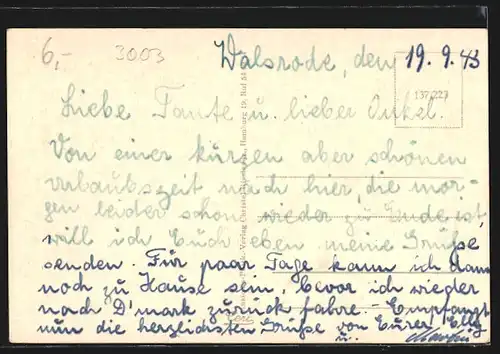 6,- 3003
Walsrode, den 19.9.43
137 223
Liebe Tante u. lieber Onkel.
Von einer kurzen aber schönen
Urlaubszeit nach hier, die mor-
gen leider schon wieder zu Ende ist,
will ich Euch eben meine Grüße
senden. Für paar Tage kann ich dann
noch zu Hause sein, bevor ich wieder
nach D'mark zurück fahre. - Empfangt
nun die herzlichsten Grüße von Eurer Elly
u.
Verlag Hamburg 19, Ruf 54